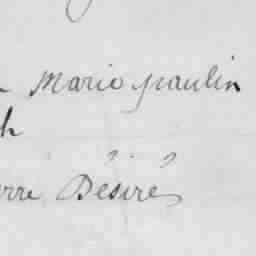 Mario paulin
h
rre Désiré